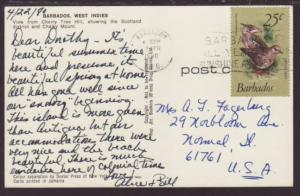 4/22/80
BARBADOS, WEST INDIES
View from Cherry Tree Hill, showing the Scotland
District and Chalky Mount.
Dear Smithy - It's
beautiful summer time
here and presume it
beautiful spring at home
All has gone well since
our "snowy" beginning.
This island is more green
than Antigua but our
accommodations there were
very nice and the beach
beautiful. There is much
evidence here of colonial time
Alice & Bill
Color reproduction by Dexter Press of New York
Cards printed in Jamaica
25c
Barbados
BARBADOS
post c
Mrs A. G. Fagerburg
29 Norbloom Ave
Normal, Il
61761
U.S.A.